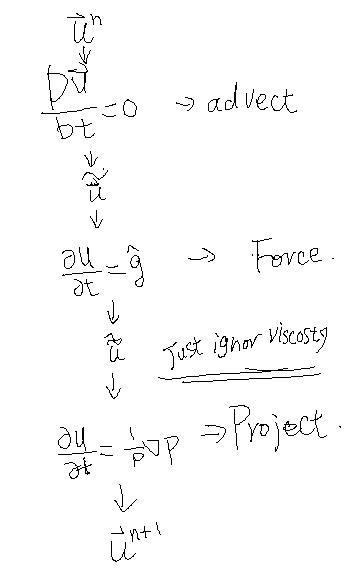 u⃗ⁿ
Du⃗/Dt = 0 → advect
ũ
∂u/∂t = ĝ → Force.
ũ
Just ignor viscosty
∂u/∂t = 1/ρ ∇P ⇒ Project.
u⃗ⁿ⁺¹